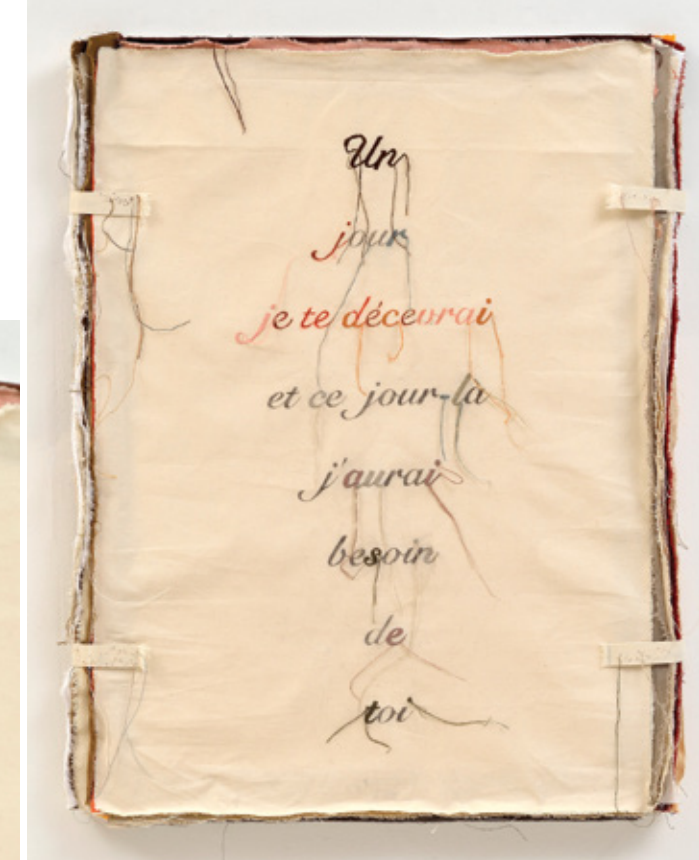 Un
jour
je te décevrai
et ce jour-là
j'aurai
besoin
de
toi